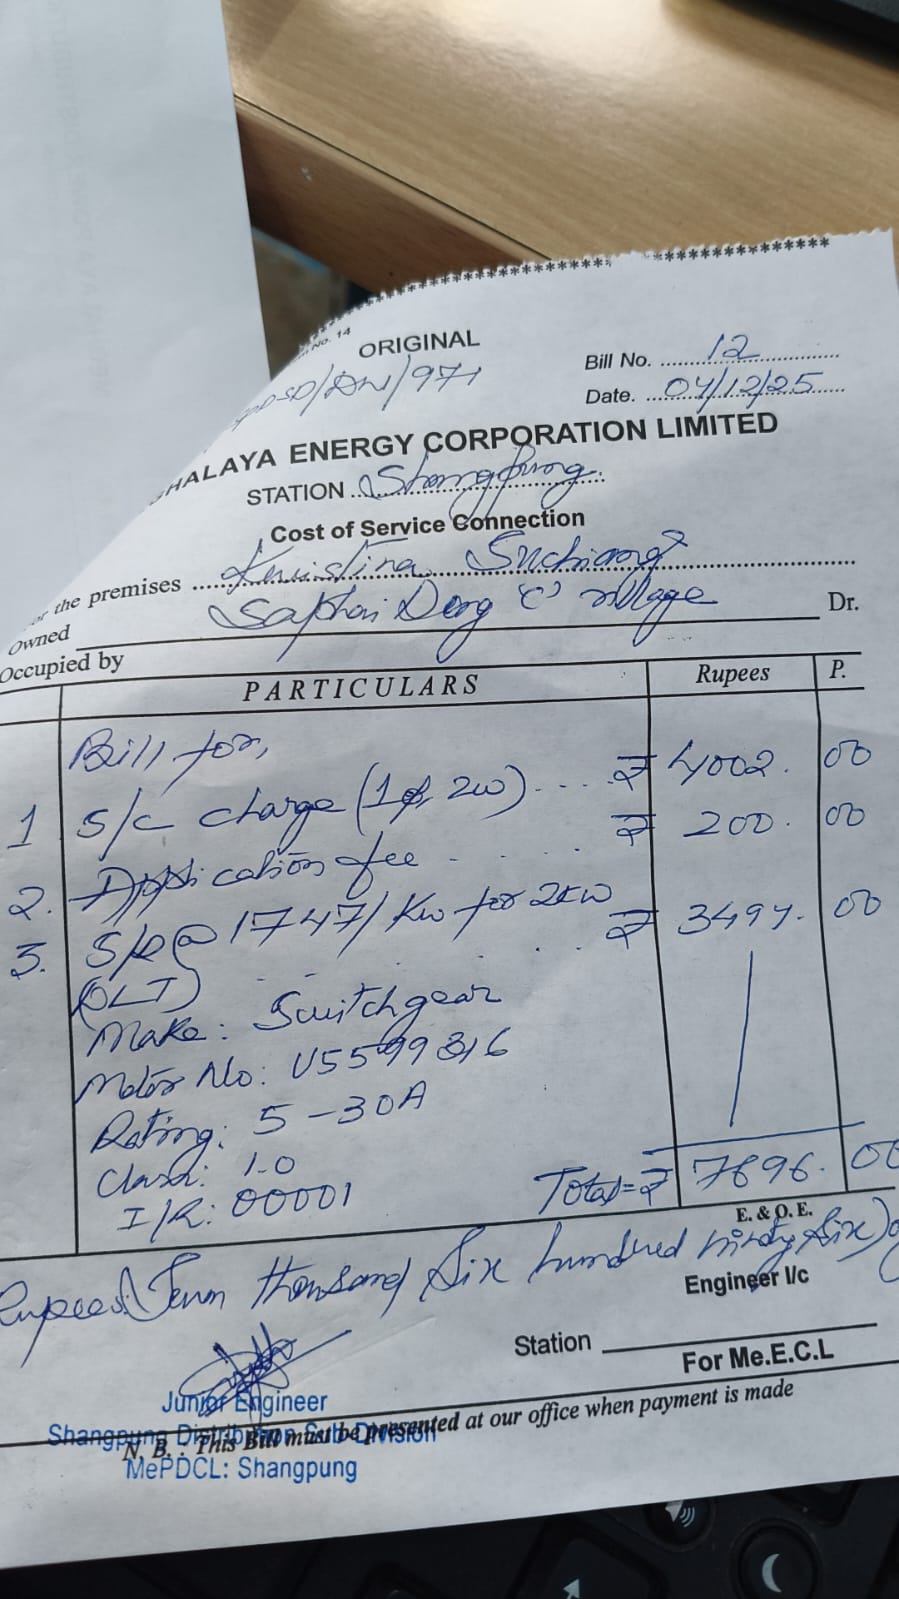 No. 14
ORIGINAL
Bill No. 12
/DW/971
Date. 04/12/25
HALAYA ENERGY CORPORATION LIMITED
STATION Shangpung
Cost of Service Connection
the premises Kwistina Suchiang
Owned
Saphai Deng 'C' village Dr.
Occupied by
PARTICULARS Rupees P.
Bill for,
1 S/C charge (1φ, 2w) .... ₹ 4002. 00
2. Application fee ₹ 200. 00
3. S/D @ 1747/Kw for 2KW ₹ 3494. 00
(DLT)
Make: Switchgear
Meter No: U5599316
Rating: 5-30A
Class: 1.0
I/R: 00001
Total= ₹ 7696. 00
E. & O. E.
Rupees (Seven thousand Six hundred ninety Six)
Engineer I/c
Station
For Me.E.C.L
Junior Engineer
Shangpung Distribution Sub-Division
N. B. : This Bill must be presented at our office when payment is made
MePDCL: Shangpung